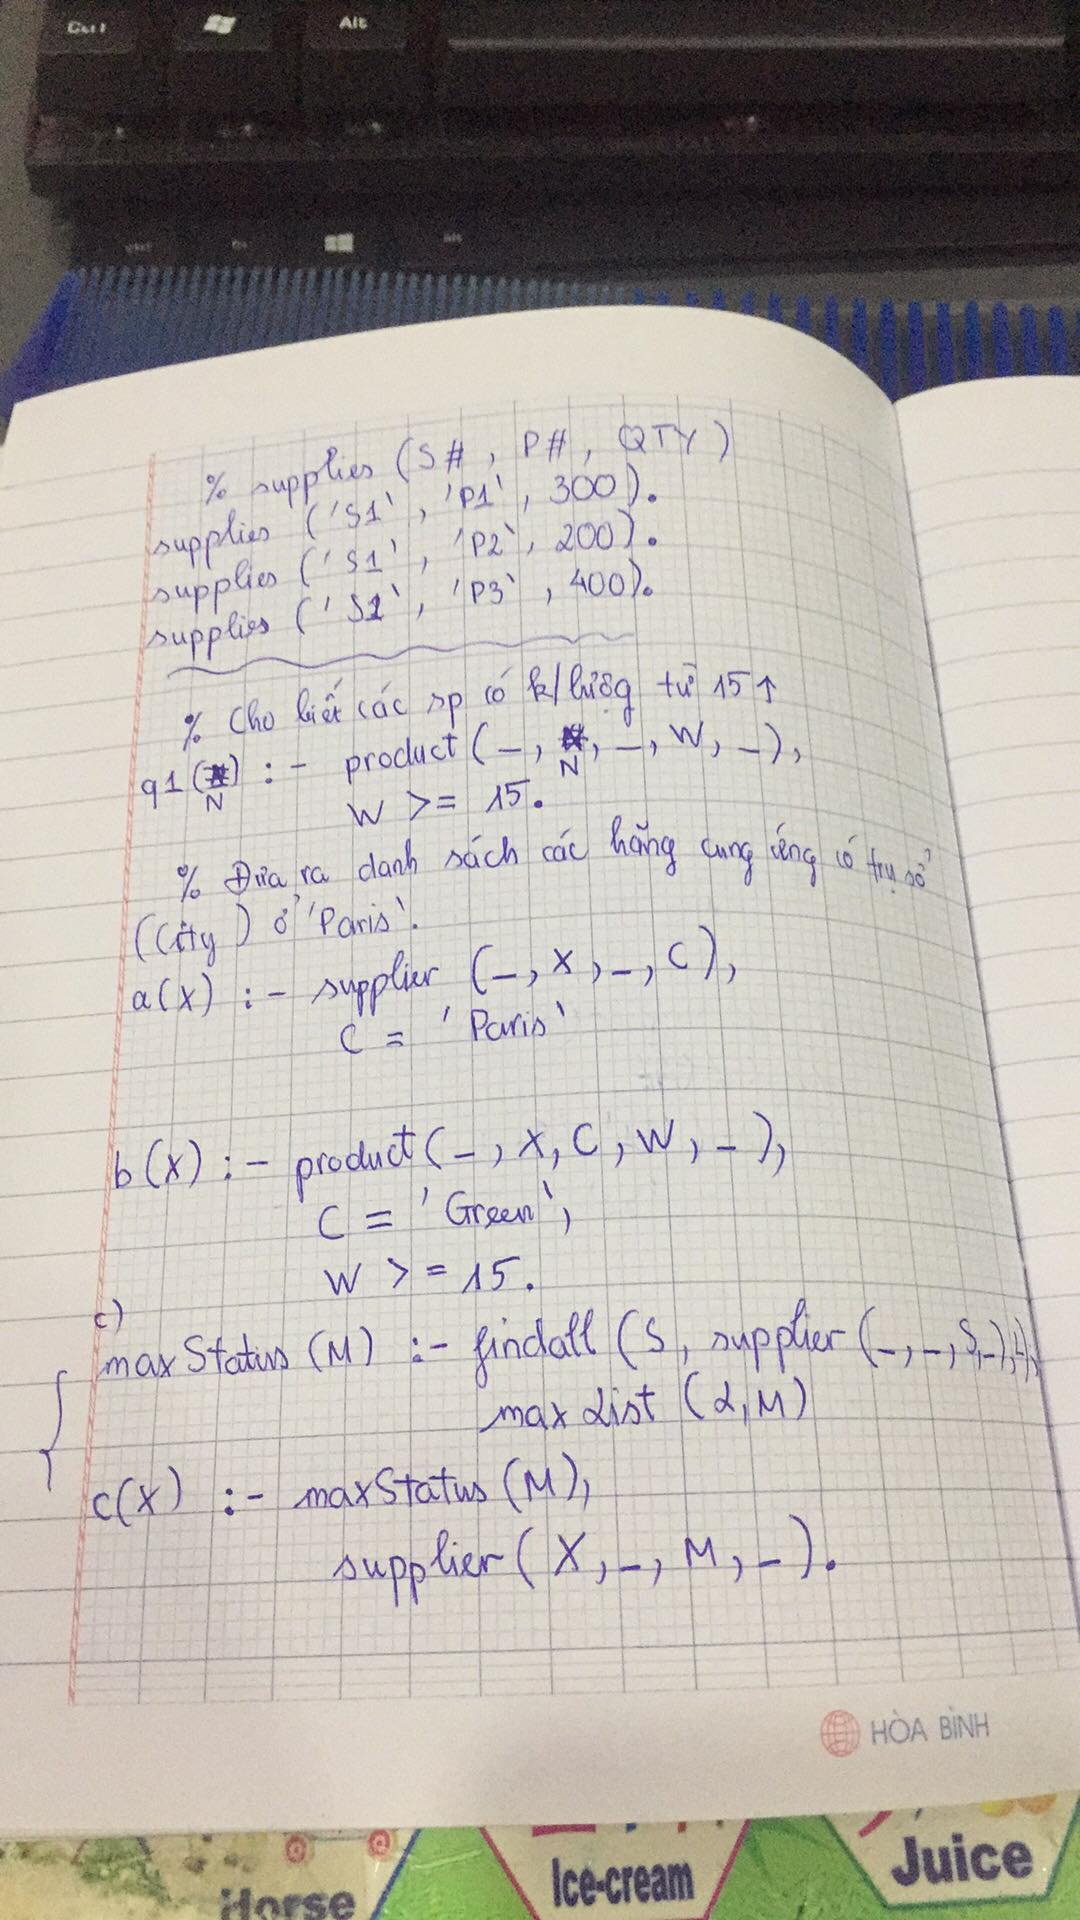 Ctrl Alt
alt
% supplies (S#, P#, QTY)
supplies ('S1', 'P1', 300).
supplies ('S1', 'P2', 200).
supplies ('S1', 'P3', 400).
% Cho biết các sp có k/lượng từ 15↑
q1(N) :- product(_, N, _, W, _),
W >= 15.
% Đưa ra danh sách các hãng cung ứng có trụ sở
(City) ở 'Paris'.
a(X) :- supplier (_, X, _, C),
C = 'Paris'
b(X) :- product(_, X, C, W, _),
C = 'Green',
W >= 15.
c)
maxStatus (M) :- findall (S, supplier (_, _, S, _), L),
maxList (L, M)
c(X) :- maxStatus (M),
supplier (X, _, M, _).
HÒA BÌNH
Horse Ice-cream Juice